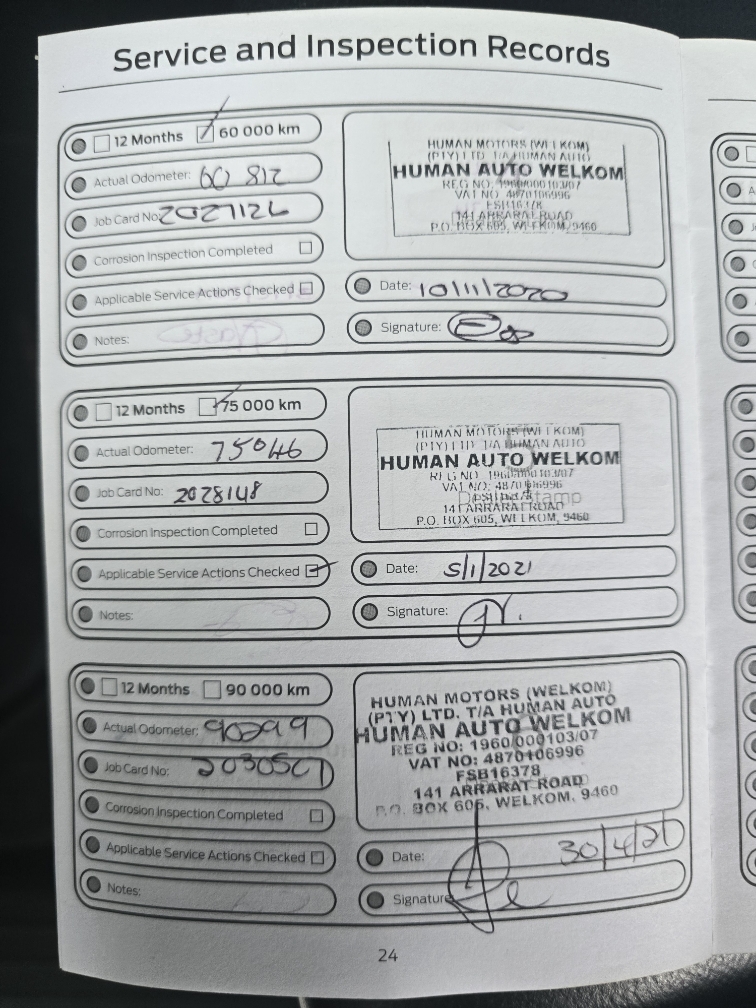 Service and Inspection Records
12 Months 60 000 km
Actual Odometer: 60 812
Job Card No: 2027126
Corrosion Inspection Completed
Applicable Service Actions Checked
Notes:
HUMAN MOTORS (WELKOM)
(PTY) LTD T/A HUMAN AUTO
HUMAN AUTO WELKOM
REG NO: 1960/000103/07
VAT NO: 4870106996
141 ARRARAT ROAD
P.O. BOX 605, WELKOM, 9460
Date: 10/11/2020
Signature:
12 Months 75 000 km
Actual Odometer: 75046
Job Card No: 2028148
Corrosion Inspection Completed
Applicable Service Actions Checked
Notes:
HUMAN MOTORS (WELKOM)
(PTY) LTD T/A HUMAN AUTO
HUMAN AUTO WELKOM
REG NO: 1960/000103/07
VAT NO: 4870106996
141 ARRARAT ROAD
P.O. BOX 605, WELKOM, 9460
Date: 5/1/2021
Signature:
12 Months 90 000 km
Actual Odometer:
Job Card No:
Corrosion Inspection Completed
Applicable Service Actions Checked
Notes:
HUMAN MOTORS (WELKOM)
(PTY) LTD. T/A HUMAN AUTO
HUMAN AUTO WELKOM
REG NO: 1960/000103/07
VAT NO: 4870106996
FSB16378
141 ARRARAT ROAD
P.O. BOX 605, WELKOM, 9460
Date: 30/4/21
Signature
24